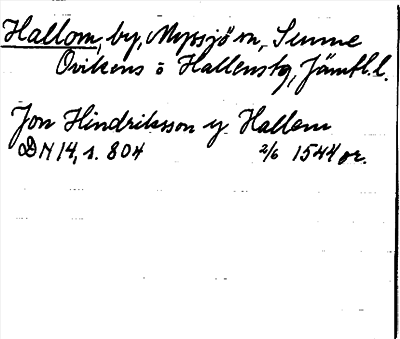 Hallom, by, Myssjö sn, Sunne
Ovikens o Hallens tg, Jämtl.l.
Jon Hindriksson y Hallem
DN 14, s. 804 2/6 1544 or.